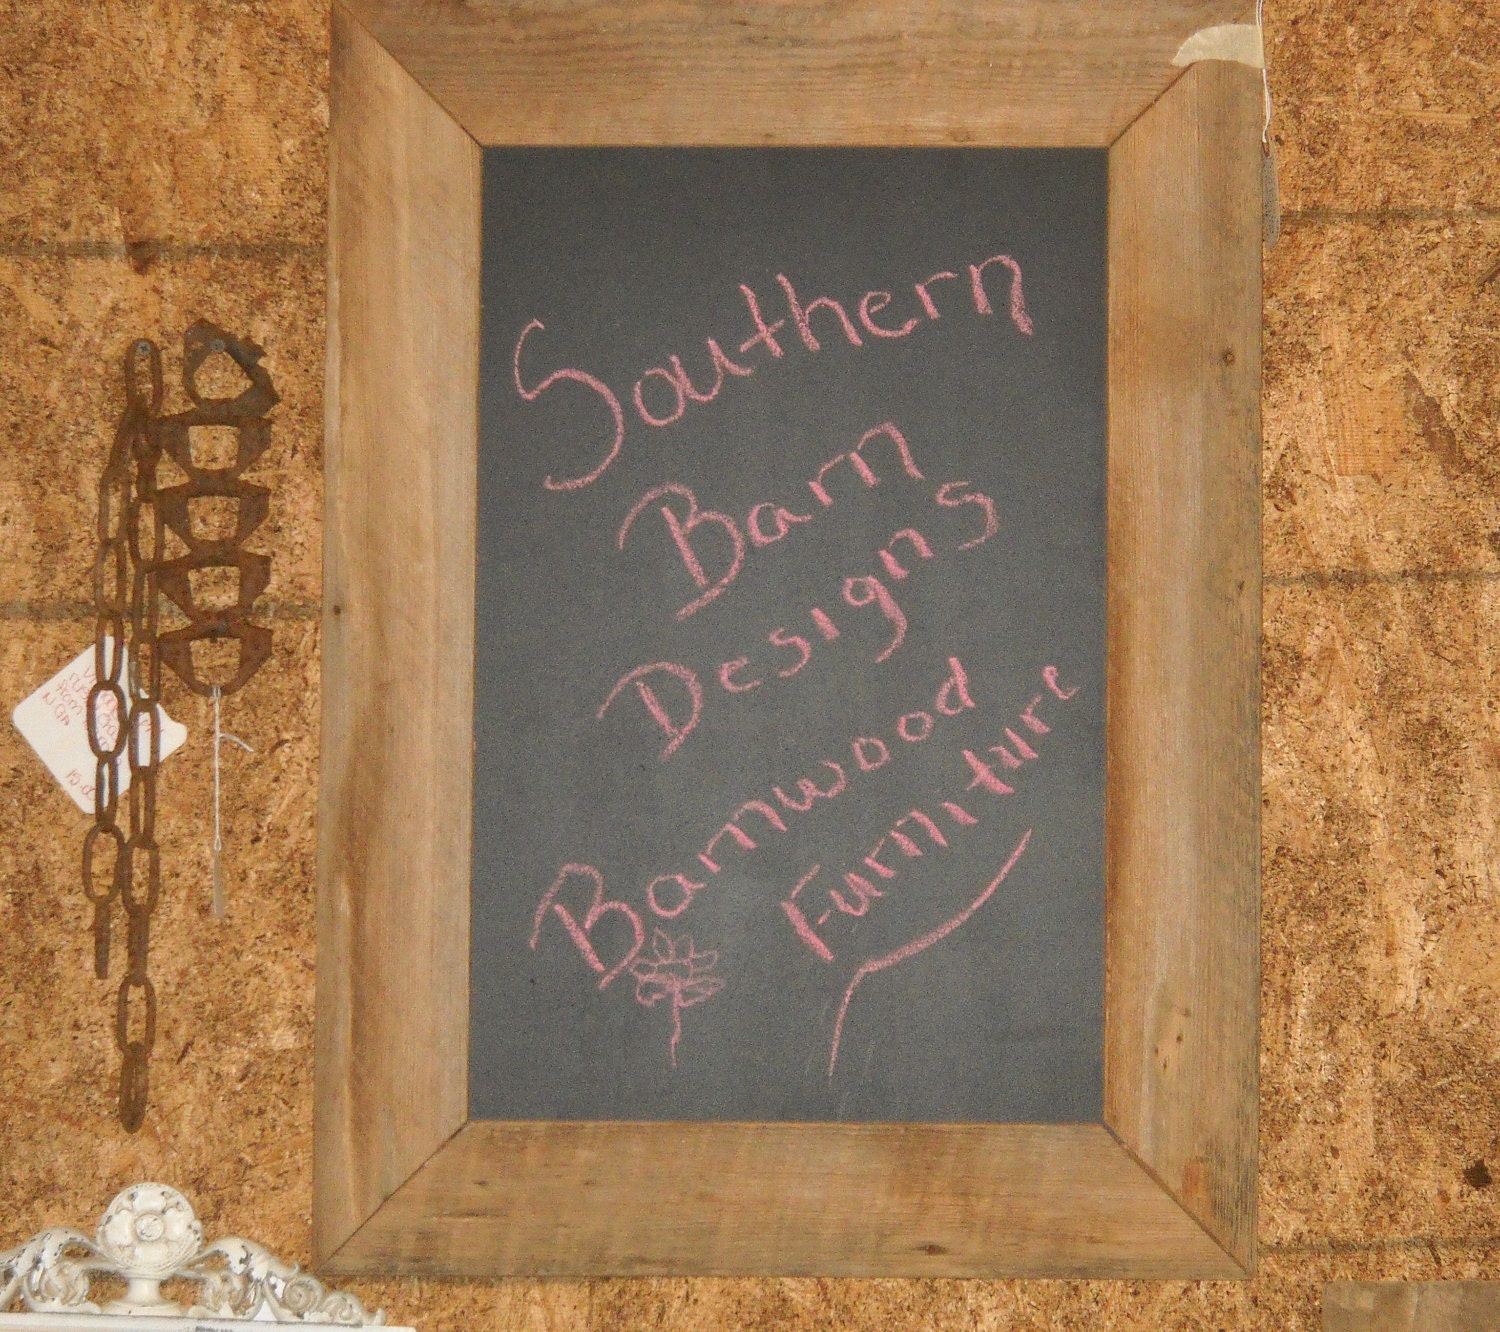 Southern
Barn
Designs
Barnwood
Furniture